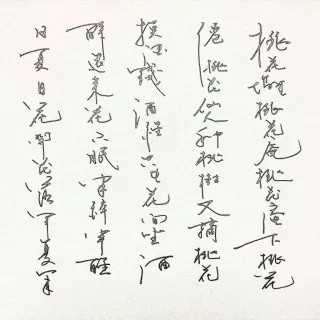 桃花塢裡桃花庵桃花庵下桃花
僊桃花仙人种桃樹又摘桃花
換酒錢酒醒只在花前坐酒
醉還來花下眠半醉半醒
日复日花開花落年复年